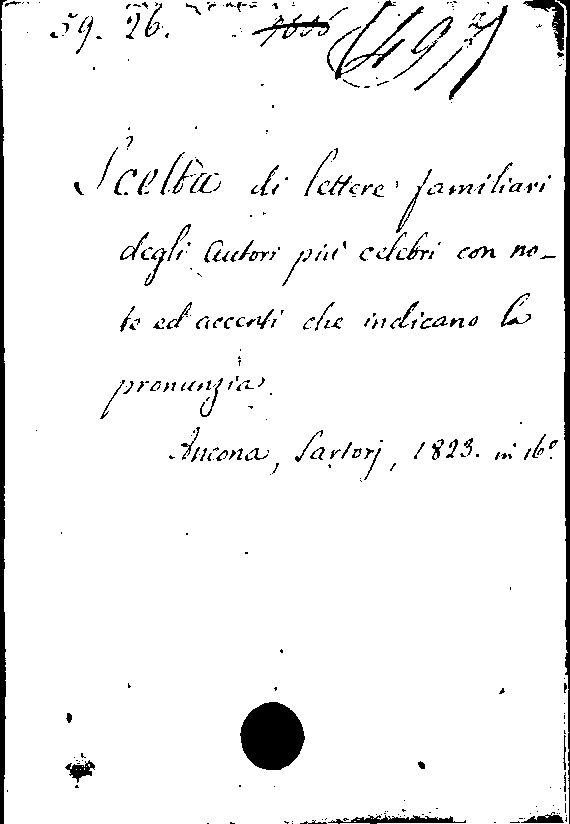 59. 26.
Scelta di lettere familiari
degli autori più celebri con no-
te ed accenti che indicano la
pronunzia.
Ancona, Sartorj, 1823. in 16°.